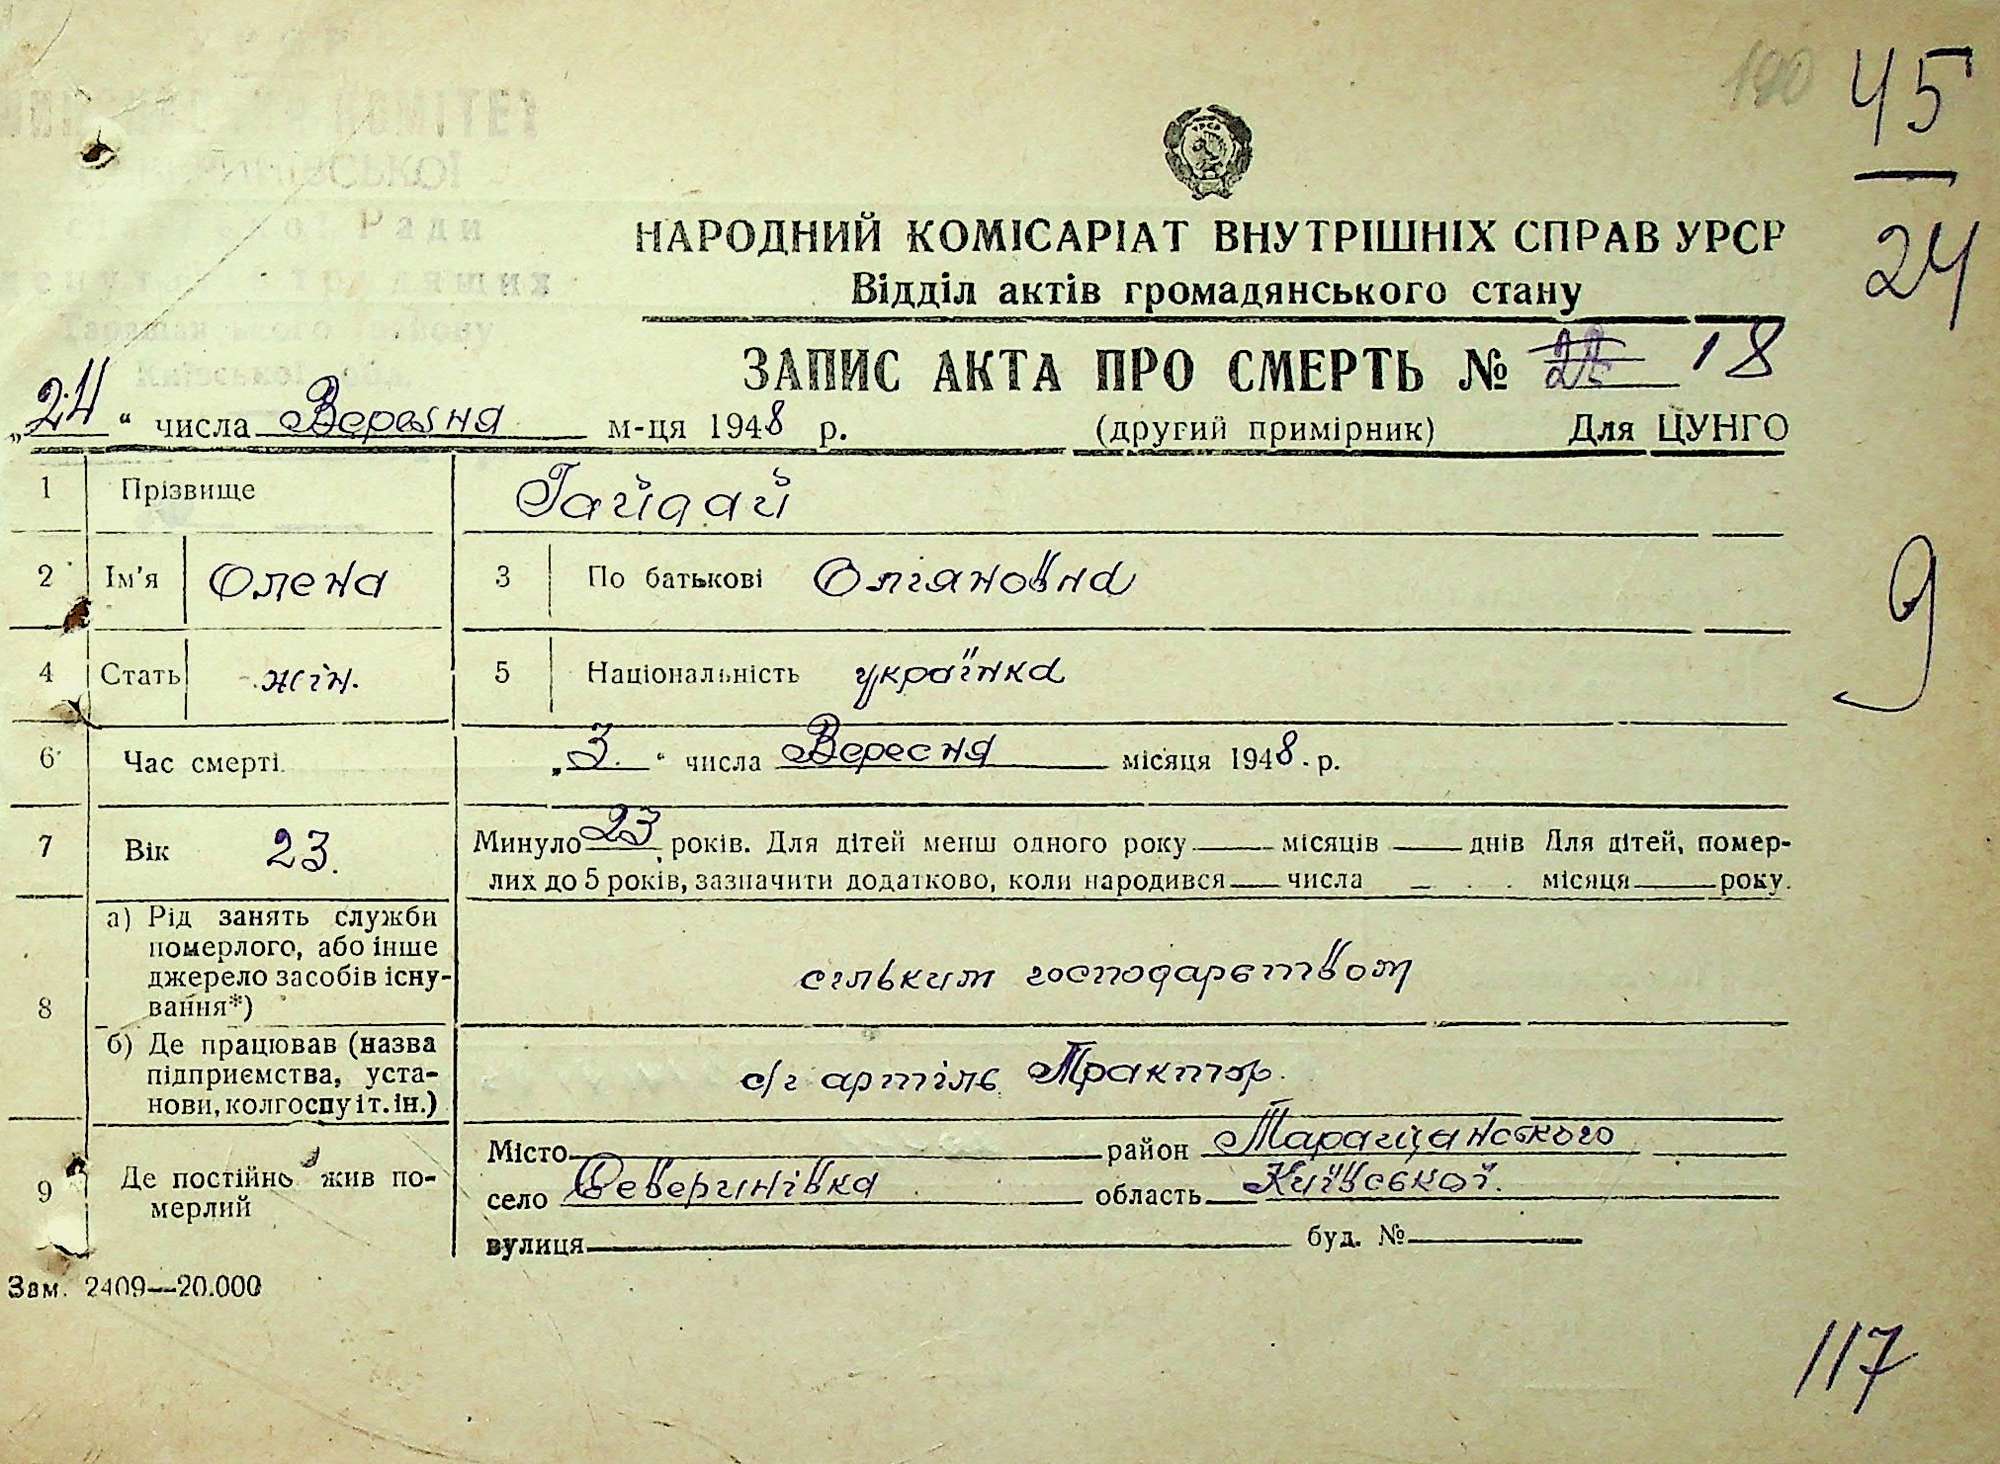 190
45
24
НАРОДНИЙ КОМІСАРІАТ ВНУТРІШНІХ СПРАВ УРСР
Відділ актів громадянського стану
ЗАПИС АКТА ПРО СМЕРТЬ № 18
„24“ числа Вересня м-ця 1948 р. (другий примірник) Для ЦУНГО
1 Прізвище Гайдай
2 Ім'я Олена 3 По батькові Оліяновна
4 Стать жін. 5 Національність українка
9
6 Час смерті „3.“ числа Вересня місяця 1948. р.
7 Вік 23. Минуло 23 років. Для дітей менш одного року — місяців — днів Для дітей, помер-
лих до 5 років, зазначити додатково, коли народився — числа — місяця — року.
8 а) Рід занять служби
померлого, або інше
джерело засобів існу-
вання*)
сільким господарством
б) Де працював (назва
підприємства, уста-
нови, колгоспу і т. ін.)
с/г артіль Трактор.
9 Де постійно жив по-
мерлий
Місто — район Таращанського
село Северинівка область Київської.
вулиця — буд. № —
Зам. 2409—20.000
117